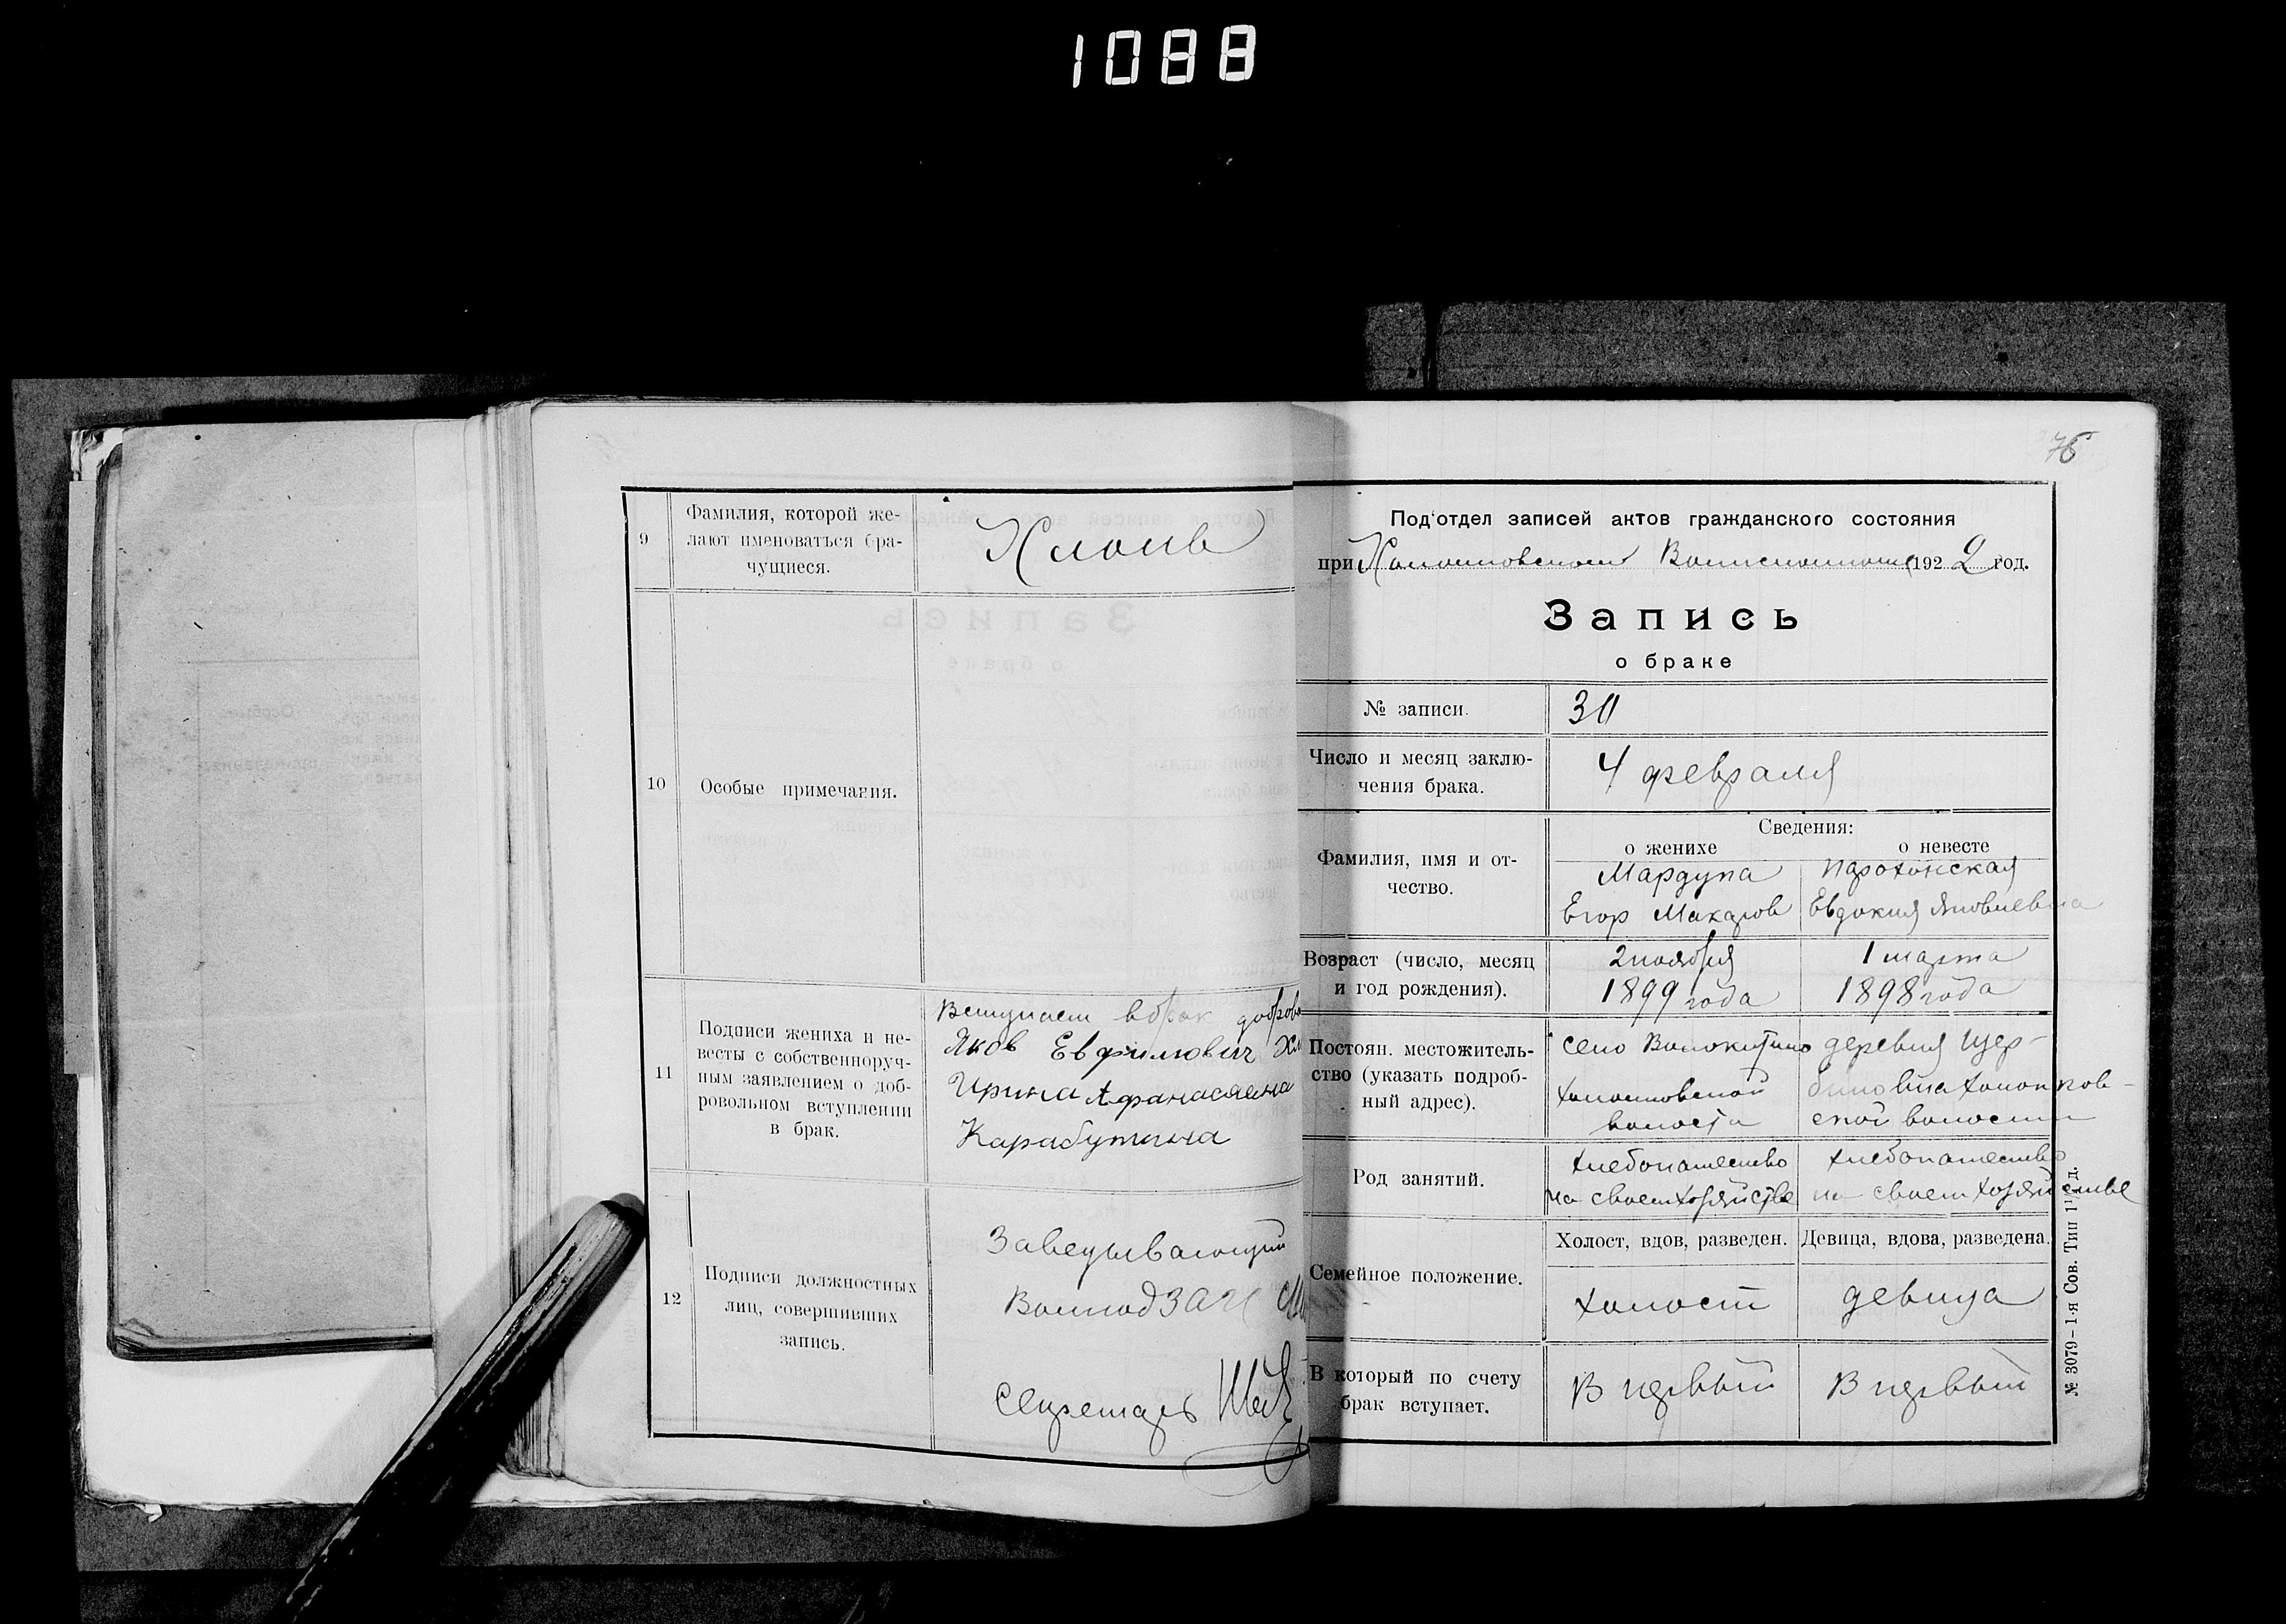 1088
9
Фамилия, которой же-
лают именоваться бра-
чущиеся.
10
Особые примечания.
11
Подписи жениха и не-
весты с собственноруч-
ным заявлением о доб-
ровольном вступлении
в брак.
Вступаем в брак добров
Яков Евфимович Хл
Ирина Афанасьевна
Карабутина
12
Подписи должностных
лиц, совершивших
запись.
Заведывающий
ВолподЗАГ
Секретарь
76
Под'отдел записей актов гражданского состояния
при Волисполкоме 1922 год.
Запись
о браке
№ записи.
30
Число и месяц заклю-
чения брака.
4 февраля
Фамилия, имя и от-
чество.
Сведения:
о женихе
о невесте
Мардупа
Егор Макаров
Евдокия Яковлевна
Возраст (число, месяц
и год рождения).
2 ноября
1899 года
1 марта
1898 года
Постоян. местожитель-
ство (указать подроб-
ный адрес).
село Волокитино
волости
деревня Щер-
ской волости
Род занятий.
хлебопашество
на своем хозяйстве
хлебопашество
на своем хозяйстве
Семейное положение.
Холост, вдов, разведен.
Девица, вдова, разведена.
холост
девица
В который по счету
брак вступает.
В первый
В первый
№ 3079–1-я Сов. Тип 1¹/₂ д.